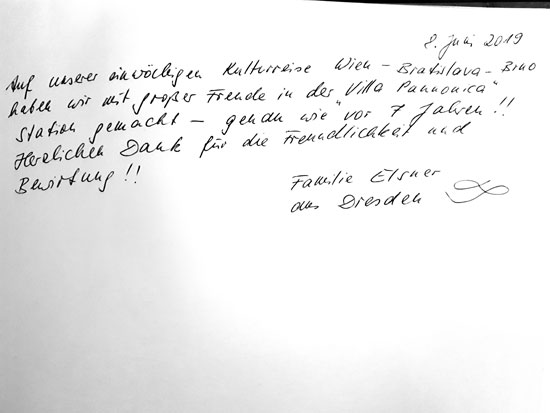 8. Juni 2019
Auf unserer einwöchigen Kulturreise Wien – Bratislava – Brno
haben wir mit großer Freude in der "Villa Pannonica"
Station gemacht – genau wie vor 7 Jahren!!
Herzlichen Dank für die Freundlichkeit und
Bewirtung!!
Familie Elsner
aus Dresden